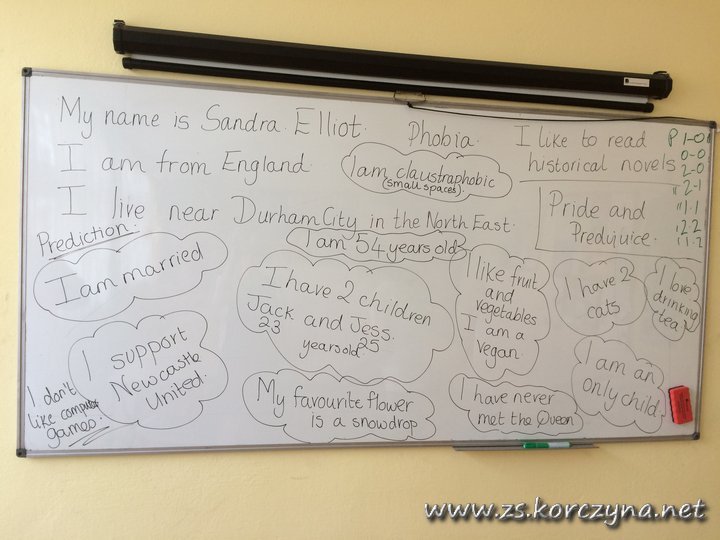 My name is Sandra Elliot.
I am from England.
I live near Durham City in the North East.
Phobia.
I am claustraphobic
(small spaces).
I like to read
historical novels
Pride and
Predujuice.
P 1-0
0-0
2-0
" 2-1
" 1-1
" 2 2
" 1-2
Prediction.
I am married
I am 54 years old
I have 2 children
Jack and Jess.
23 25
years old
I like fruit
and
vegetables
I am a
vegan.
I have 2
cats
I love
drinking
tea
I support
Newcastle
United.
I don't
like computer
games.
My favourite flower
is a snowdrop
I have never
met the Queen
I am an
only child.
www.zs.korczyna.net